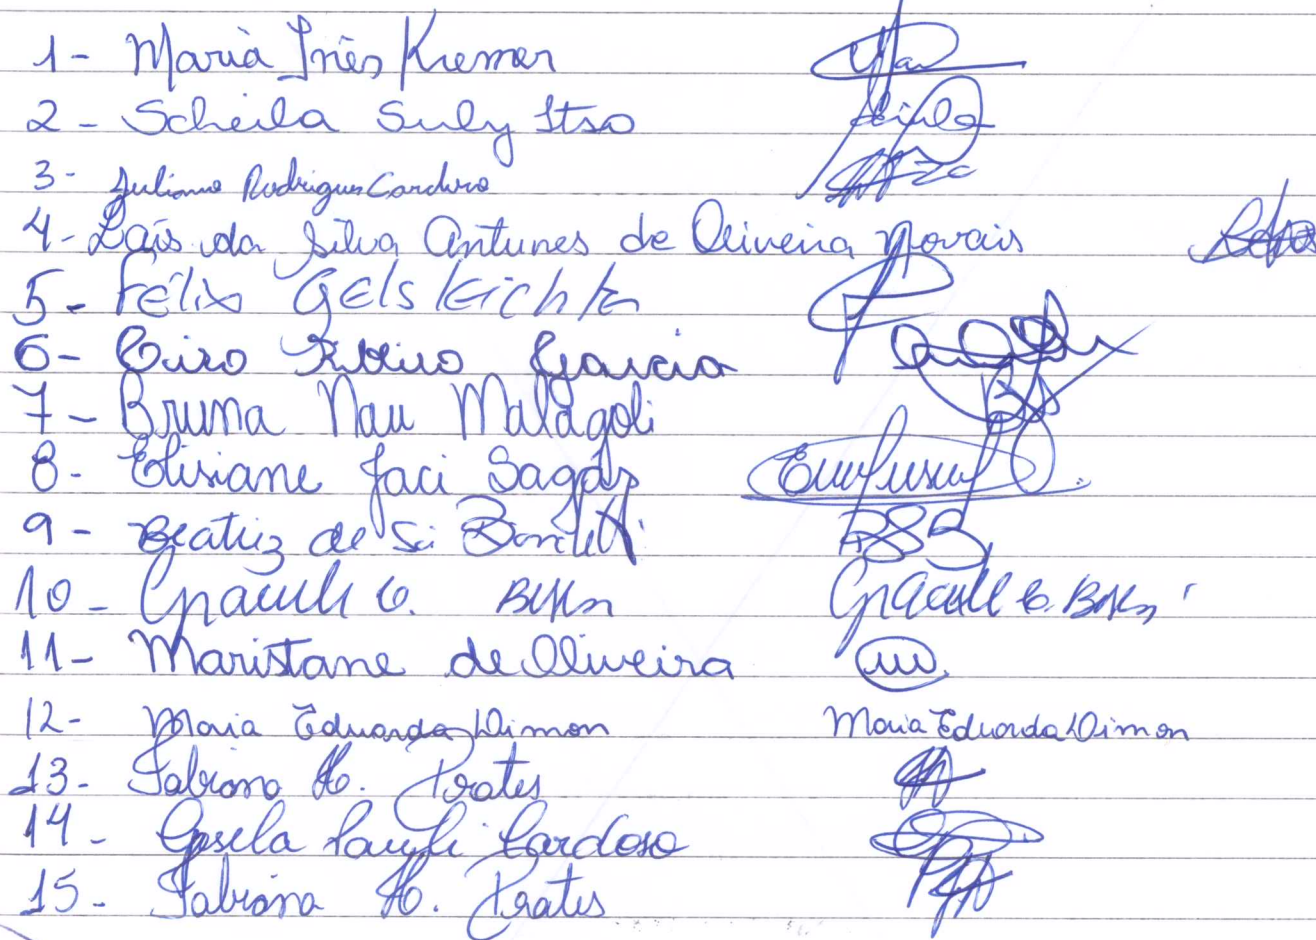 1- Maria Inês Kremer
2- Scheila Suly Itso
3- Juliano Rodrigues Cardoso
4- Laís da Silva Antunes de Oliveira Novais
5- Félix Gelsleichter
6- Ciro Ribeiro Garcia
7- Bruna Nau Malagoli
8- Elisiane Jaci Sagás
9- Beatriz de
10- C.
11- Maristane de Oliveira
12- Maria Eduarda Dimon Maria Eduarda Dimon
13- Fabiana H. Prates
14- Gisela Cardoso
15- Fabiana H. Prates